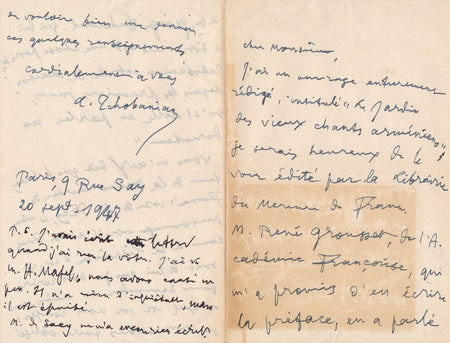 cher Monsieur,
J'ai un ouvrage entièrement
rédigé, intitulé "Le Jardin
des vieux chants arméniens",
je serais heureux de le
voir édité par la Librairie
du Mercure de France.
M. René Grousset, de l'A-
cadémie Française, qui
m'a promis d'en écrire
la préface, en a parlé
de vouloir bien me donner
ces quelques renseignements
cordialement à vous
A. Tchobanian
Paris, 9 Rue Say
20 sept. 1947
P.S. J'avais écrit
quand j'ai reçu la votre. J'ai vu
M. H. nous avons causé un
peu. Il n'a rien mais
il est
M. de m'a encore écrit.